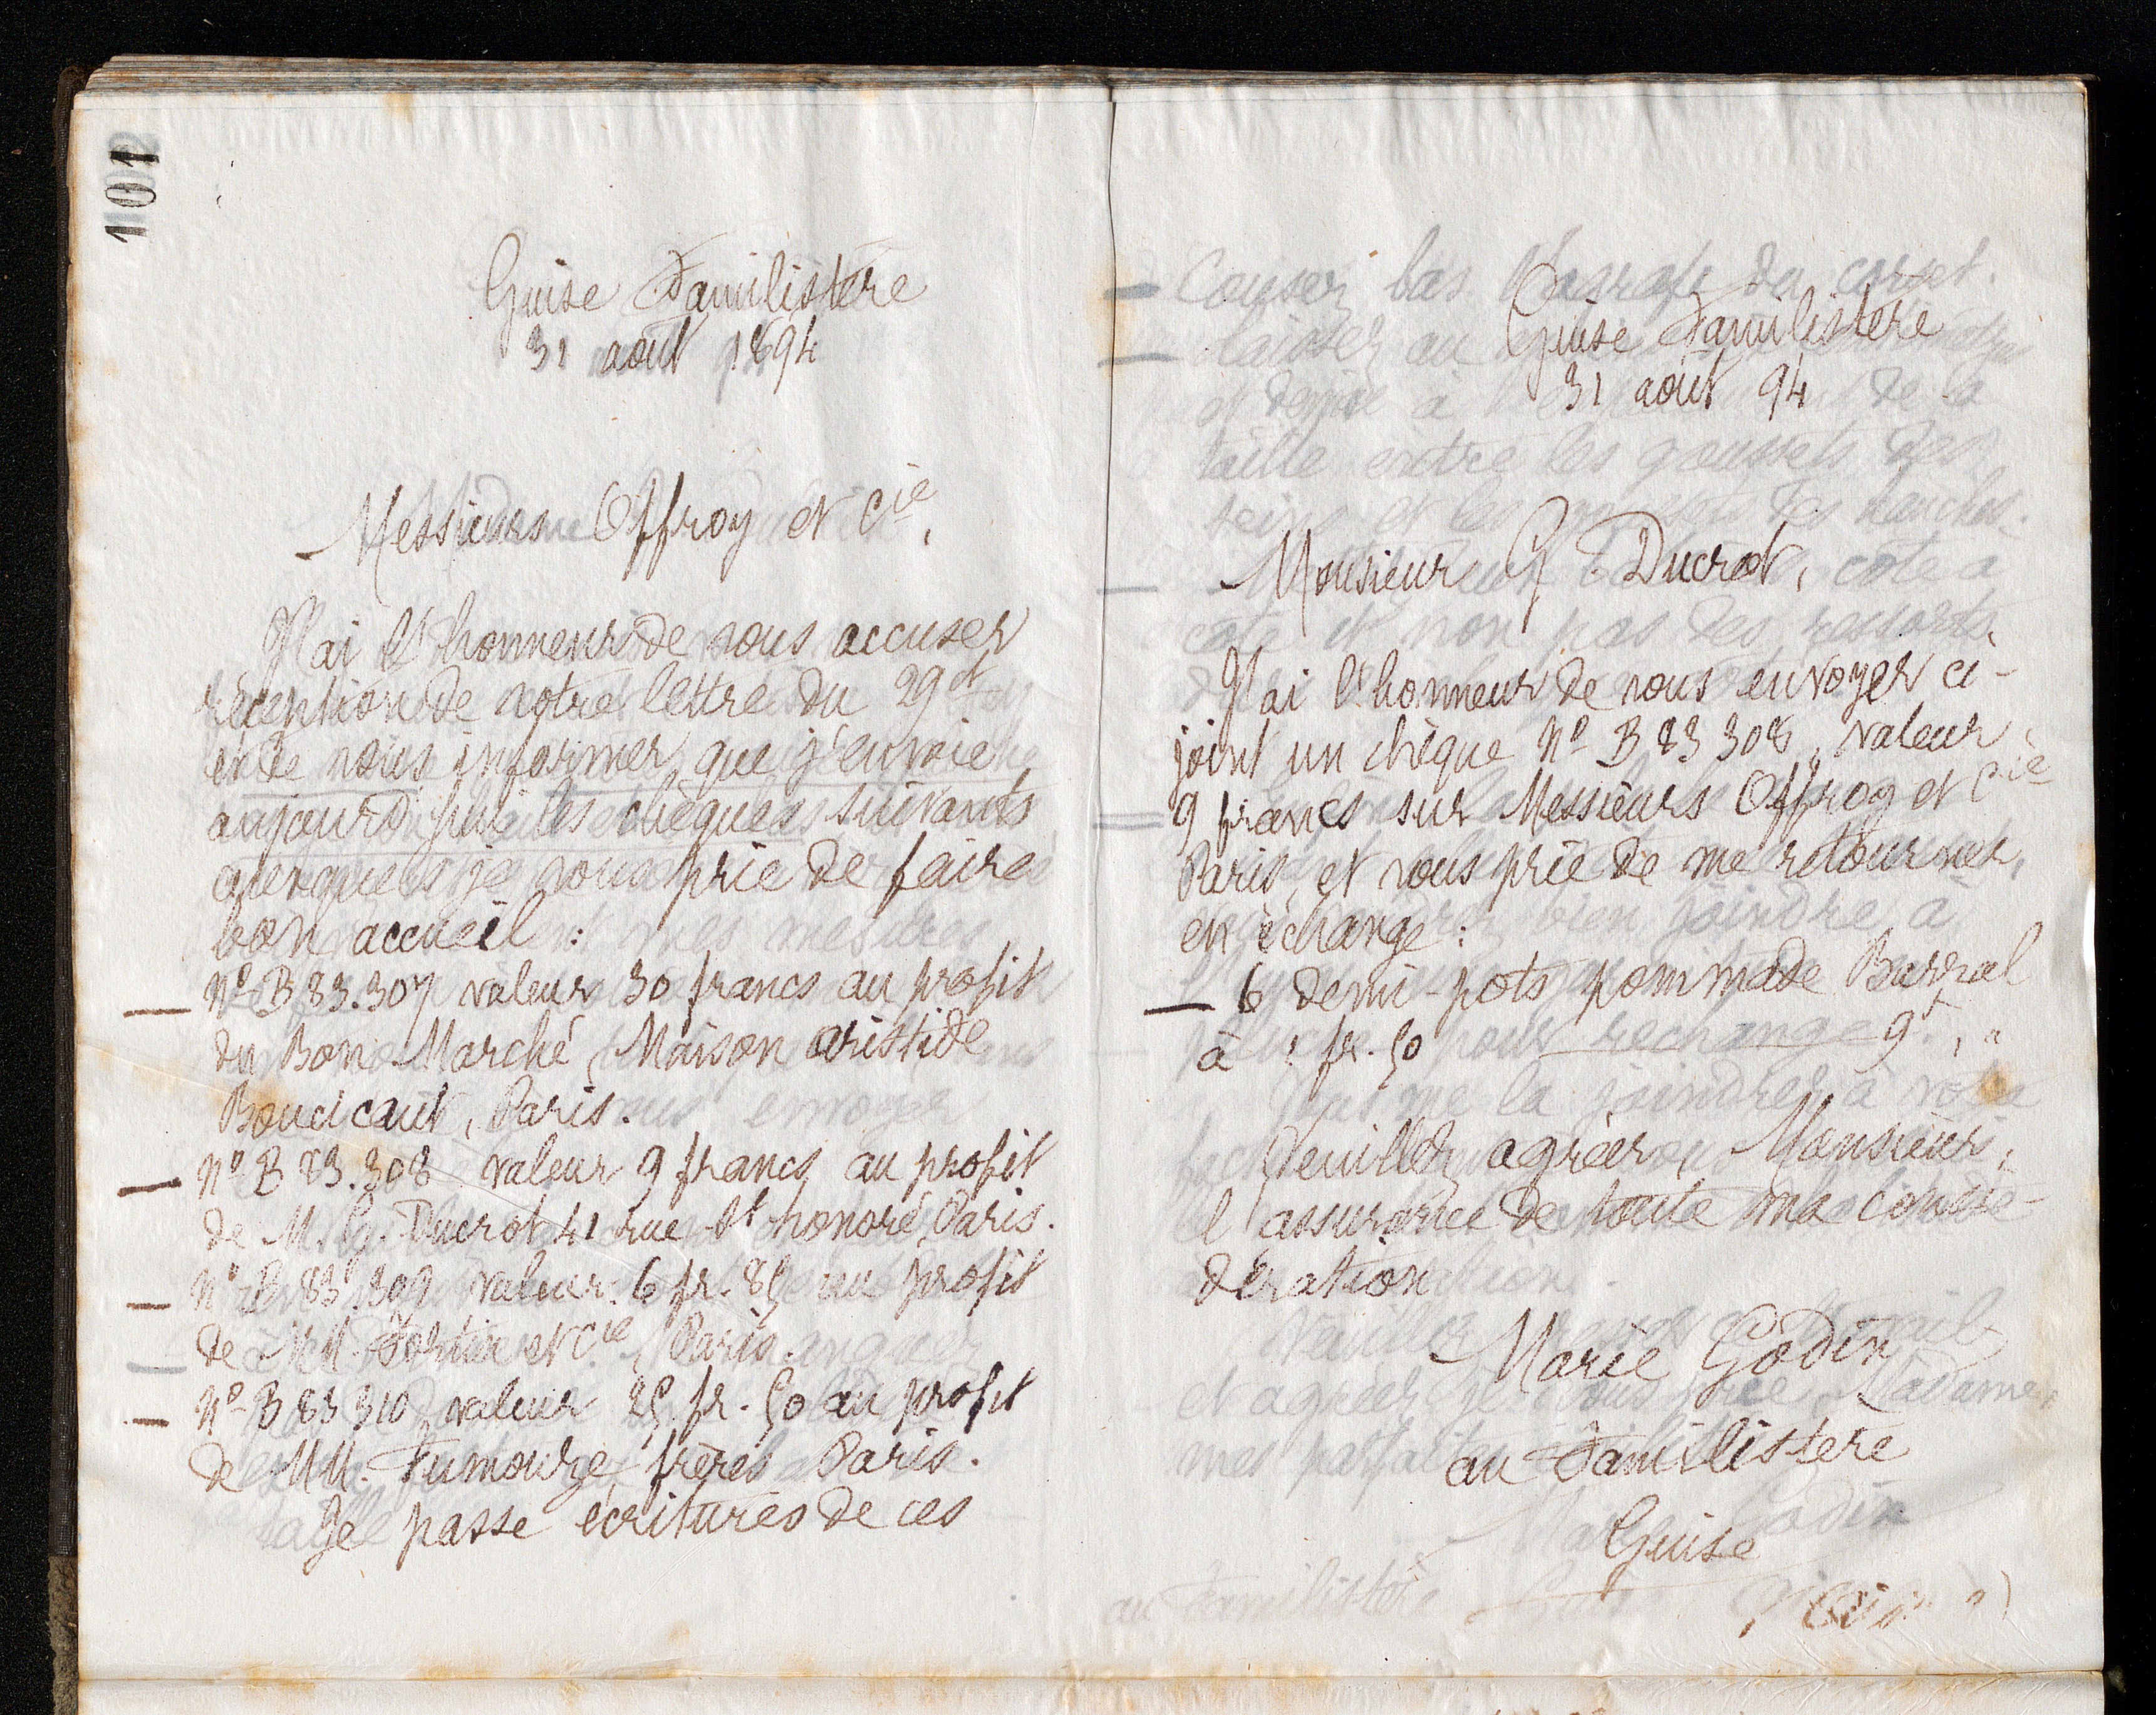 101
Guise Familistère
31 août 1894
Messieurs Offroy et Cie,
J'ai l'honneur de vous accuser
réception de votre lettre du 29 ct
et de vous informer que j'envoie
aujourd'hui les chèques suivants
auxquels je vous prie de faire
bon accueil :
— No B 83.307 valeur 30 francs au profit
du Bon Marché, Maison Aristide
Boucicaut, Paris.
— No B 83.308 valeur 9 francs au profit
de M. G. Ducrot 41 rue St honoré, Paris.
— No B 83.309 valeur 6 fr. 85 au profit
de MM. Fortin et Cie, Paris.
— No B 83 310, valeur 25 fr. 50 au profit
de MM. Fumouze frères Paris.
Je passe écritures de ces
Guise Familistère
31 août 94
Monsieur G. Ducrot,
J'ai l'honneur de vous envoyer ci-
joint un chèque No B 83 308, valeur
9 francs sur Messieurs Offroy et Cie
Paris, et vous prie de me retourner,
en échange :
— 6 demi-pots pommade Barral
à 1 fr. 50 9f, "
Veuillez agréer, Monsieur,
l'assurance de toute ma consi-
dération
Marie Godin
au Familistère
Guise